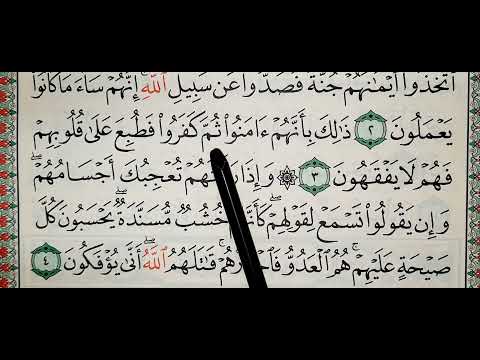 ٱتَّخَذُوٓا۟ أَيْمَٰنَهُمْ جُنَّةً فَصَدُّوا۟ عَن سَبِيلِ ٱللَّهِ ۚ إِنَّهُمْ سَآءَ مَا كَانُوا۟
يَعْمَلُونَ ٢ ذَٰلِكَ بِأَنَّهُمْ ءَامَنُوا۟ ثُمَّ كَفَرُوا۟ فَطُبِعَ عَلَىٰ قُلُوبِهِمْ
فَهُمْ لَا يَفْقَهُونَ ٣ ۞ وَإِذَا تُعْجِبُكَ أَجْسَامُهُمْ ۖ
وَإِن يَقُولُوا۟ تَسْمَعْ لِقَوْلِهِمْ ۖ خُشُبٌ مُّسَنَّدَةٌ ۖ يَحْسَبُونَ كُلَّ
صَيْحَةٍ عَلَيْهِمْ ۚ هُمُ ٱلْعَدُوُّ قَٰتَلَهُمُ ٱللَّهُ ۖ أَنَّىٰ يُؤْفَكُونَ ٤